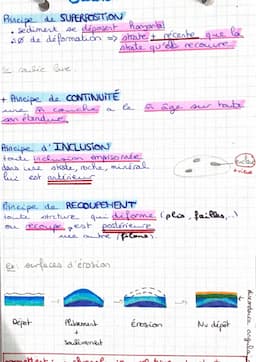 Principe de SUPERPOSITION
• sediment se déposent horizontal
⇒ strate + récente que la
strate qu'elle recouvre
+ Principe de CONTINUITÉ
une m̂ couche a le m̂ âge sur toute
son étendue
Principe d'INCLUSION
toute inclusion emprisonnée
dans une strate, roche, minéral
lui est antérieur
Principe de RECOUPEMENT
toute structure qui déforme (plis, failles, ..)
ou recoupe, est postérieure
Ex: surfaces d'érosion
Dépôt
Plissement
Soulèvement
Érosion
Nv dépôt